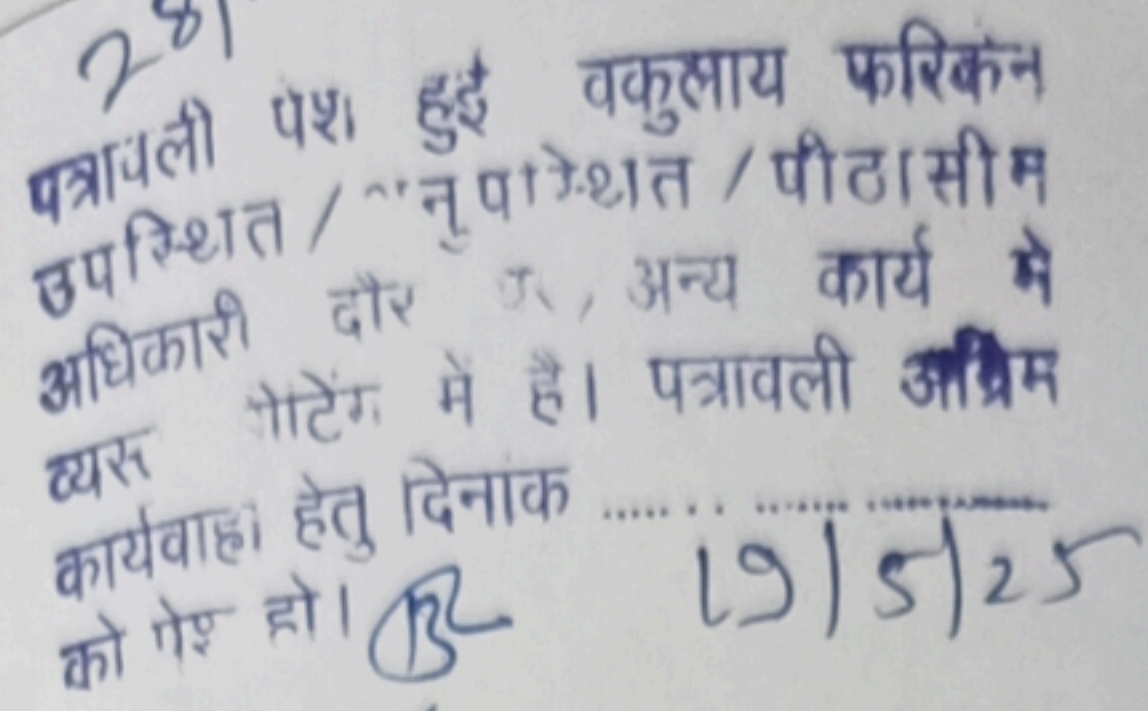 28/
पत्रावली पेश हुई वकुलाय फरिकेन
उपस्थित / अनुपस्थित / पीठासीन
अधिकारी दौरे पर, अन्य कार्य मे
व्यस्त मीटिंग में है। पत्रावली अग्रिम
कार्यवाही हेतु दिनांक .......................
19/5/25
को पेश हो।